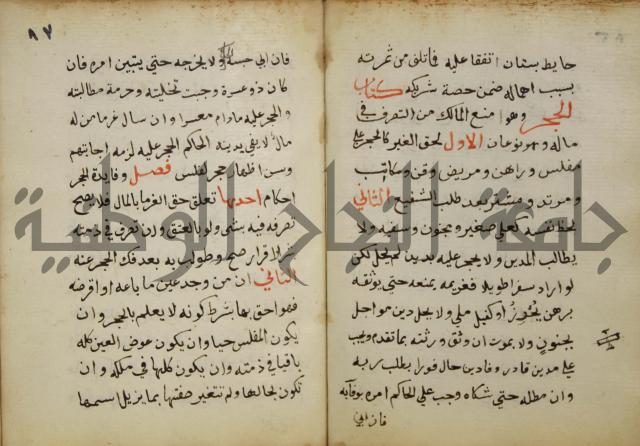 حايط بستان اتفقا عليه فما تلف من ثمرته
بسبب اهماله ضمن حصة شريكه كتاب
الحجر وهو منع المالك من التصرف في
ماله وهو نوعان الاول لحق الغير كالحجر على
مفلس وراهن ومريض وقن ومكاتب
ومرتد ومشتر بعد طلب الشفيع الثاني
لحظ نفسه كعلى صغير ومجنون وسفيه ولا
يطالب المدين ولا يحجر عليه بدين لم يحل لكن
لو اراد سفرا طويلا فلغريمه منعه حتى يوثقه
برهن يحرز او كفيل ملي ولا يحل دين مؤجل
بجنون ولا بموت ان وثق ورثته بما تقدم ويجب
على مدين قادر وفا دين حال فورا بطلب ربه
وان مطله حتى شكاه وجب على الحاكم امره بوفايه
فان ابى
٨٧
فان ابى حبسه ولا يخرجه حتى يتبين امره فان
كان ذو عسرة وجبت تخليته وحرمة مطالبته
والحجر عليه مادام معسرا وان سال غرما من له
مال لا يفي بدينه الحاكم الحجر عليه لزمه اجابتهم
وسن اظهار حجر لفلس فصل وفايدة الحجر
احكام احدها تعلق حق الغرما بالمال فلا يصح
تصرفه فيه بشي ولو بالعتق وان تصرف في ذمته
بشرا او اقرار صح وطولب به بعد فك الحجر عنه
الثاني ان من وجد عين ما باعه او اقرضه
فهو احق بها بشرط كونه لا يعلم بالحجر وان
يكون المفلس حيا وان يكون عوض العين كله
باقيا في ذمته وان يكون كلها في ملكه وان
تكون بحالها ولم تتغير صفتها بما يزيل اسمها
جامعة النجاح الوطنية